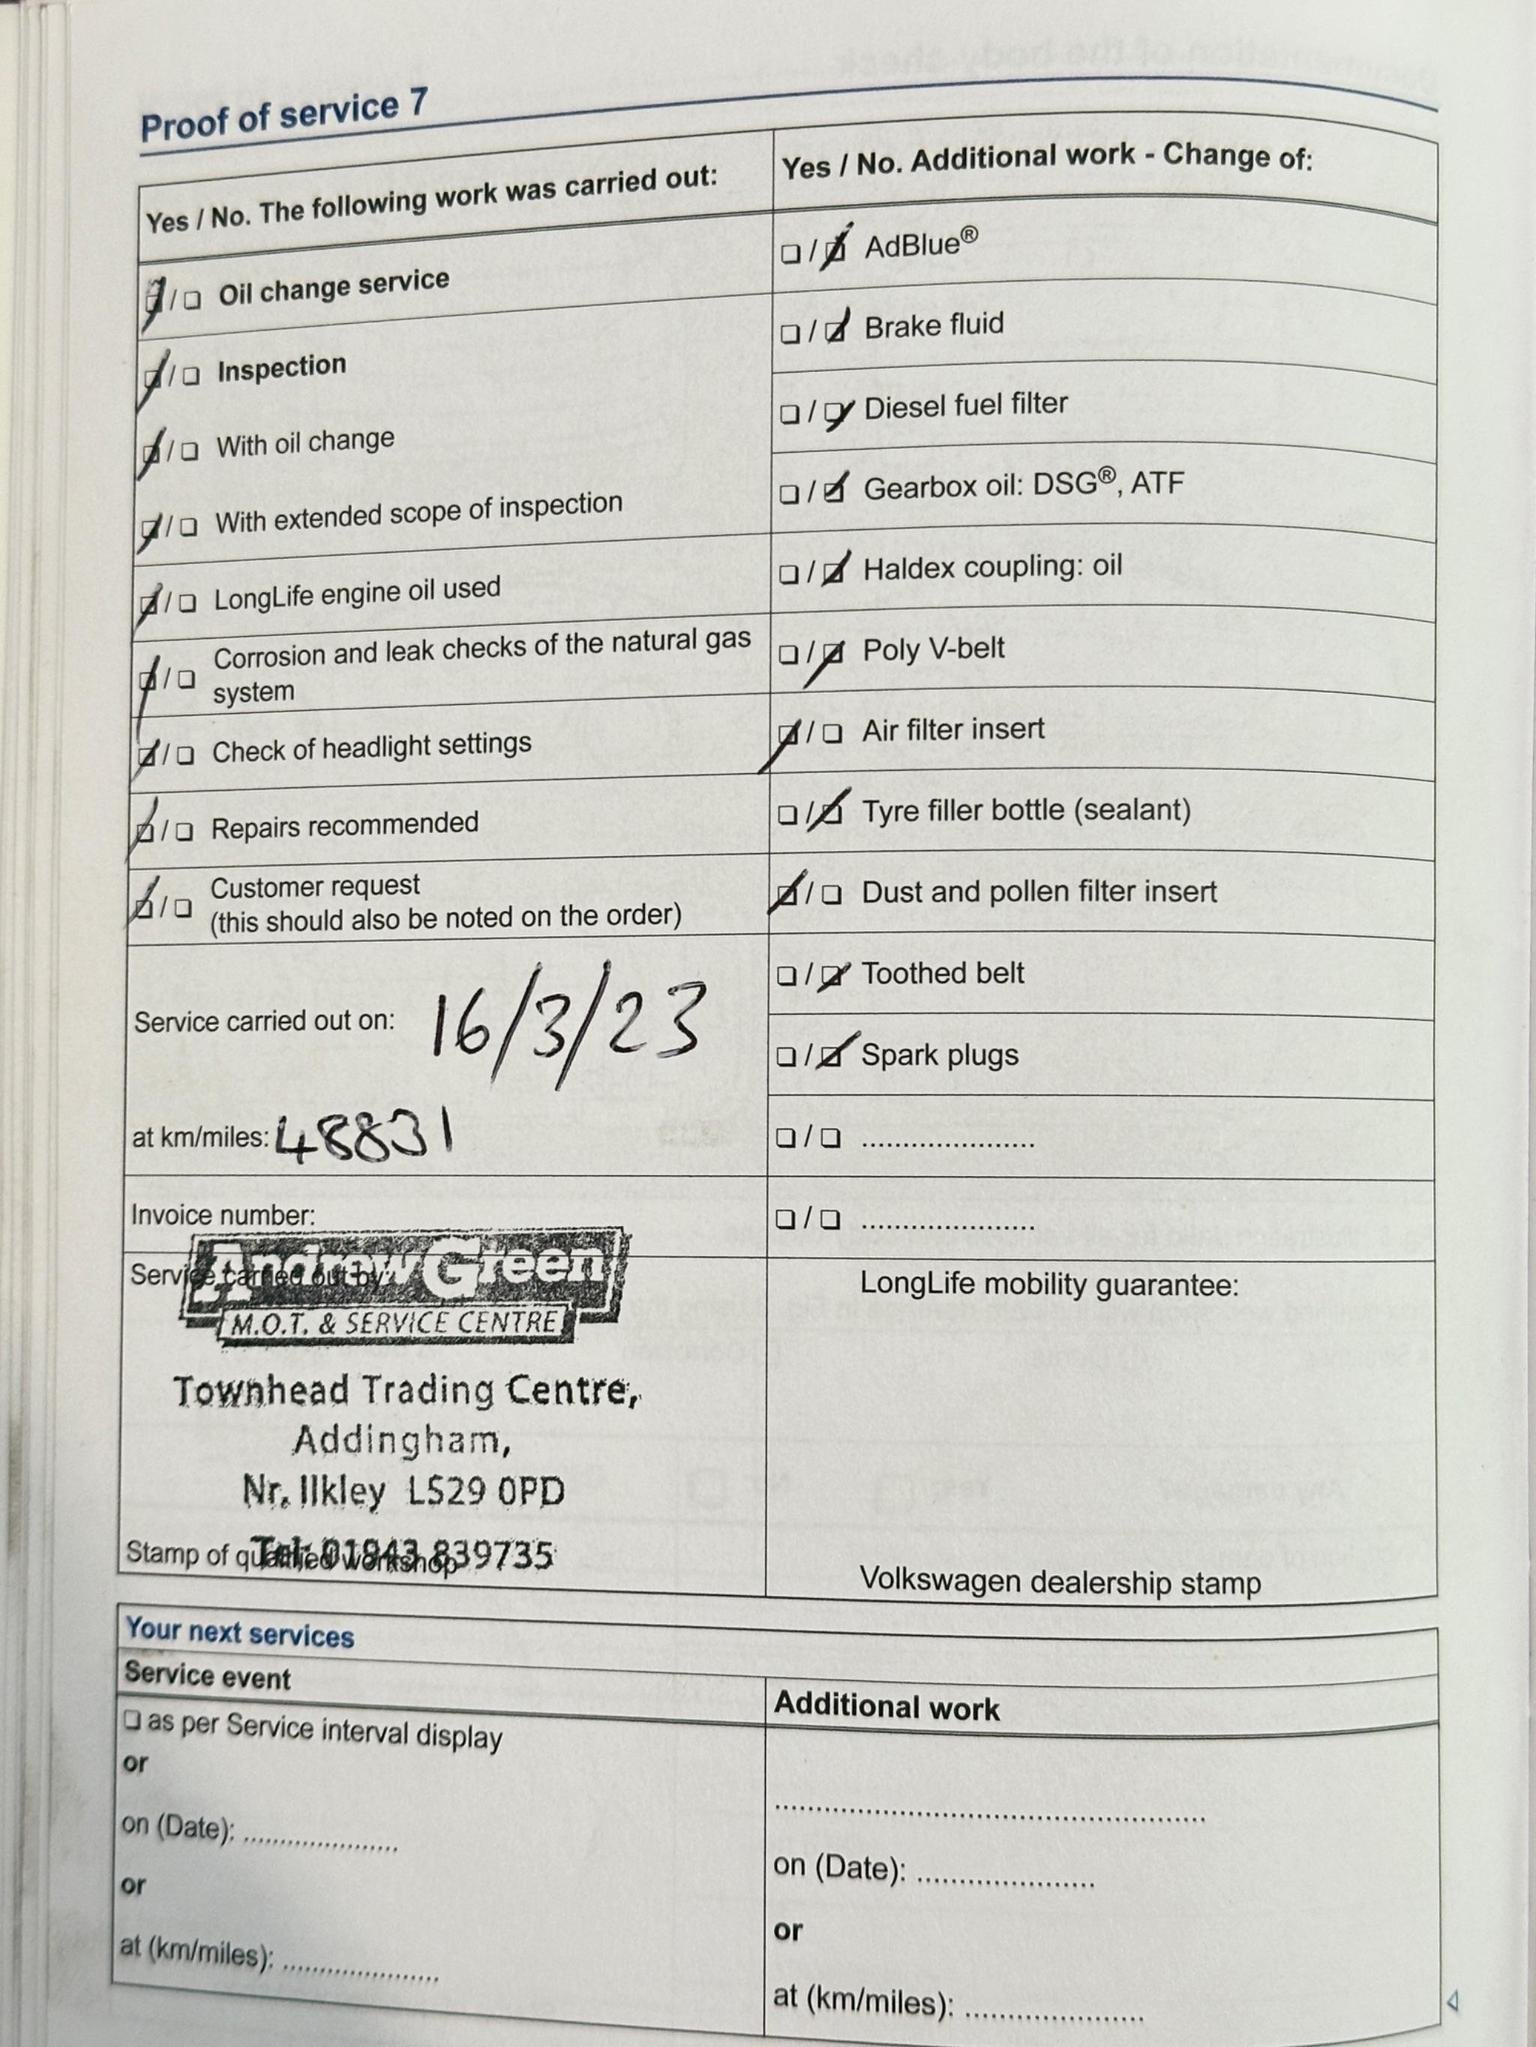 Proof of service 7
Yes / No. The following work was carried out:
/ Oil change service
/ Inspection
/ With oil change
/ With extended scope of inspection
/ LongLife engine oil used
/ Corrosion and leak checks of the natural gas
system
/ Check of headlight settings
/ Repairs recommended
/ Customer request
(this should also be noted on the order)
Service carried out on: 16/3/23
at km/miles: 48831
Invoice number:
Service carried out by:
Andrew Green
M.O.T. & SERVICE CENTRE
Townhead Trading Centre,
Addingham,
Nr. Ilkley LS29 0PD
Tel: 01943 839735
Stamp of qualified workshop
Yes / No. Additional work - Change of:
/ AdBlue®
/ Brake fluid
/ Diesel fuel filter
/ Gearbox oil: DSG®, ATF
/ Haldex coupling: oil
/ Poly V-belt
/ Air filter insert
/ Tyre filler bottle (sealant)
/ Dust and pollen filter insert
/ Toothed belt
/ Spark plugs
/ .....................
/ .....................
LongLife mobility guarantee:
Volkswagen dealership stamp
Your next services
Service event
as per Service interval display
or
on (Date): .....................
or
at (km/miles): .....................
Additional work
..........................................................
on (Date): .....................
or
at (km/miles): .....................